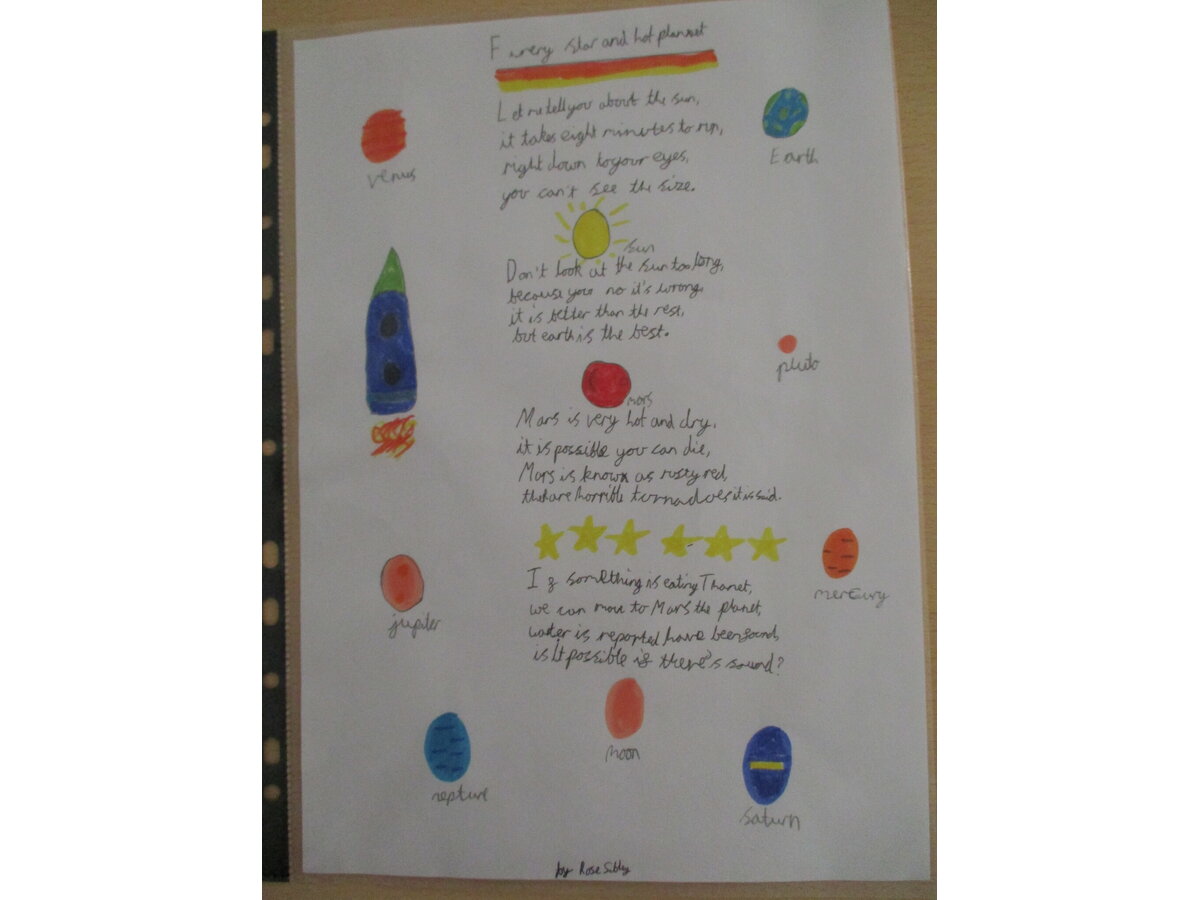 Firery star and hot plannet
Let me tell you about the sun,
it takes eight minutes to run,
right down to your eyes,
you can't see the size.
venus
Earth
sun
Don't look at the sun too long,
because you no it's wrong,
it is better than the rest,
but earth is the best.
pluto
mars
Mars is very hot and dry,
it is possible you can die,
Mars is known as rusty red,
ther are horrible tornadoes it is said.
If something is eating Thanet,
we can move to Mars the planet,
water is reported have been found,
is it possible if there's sound?
mercury
jupiter
moon
neptune
saturn
by Rose Sibley